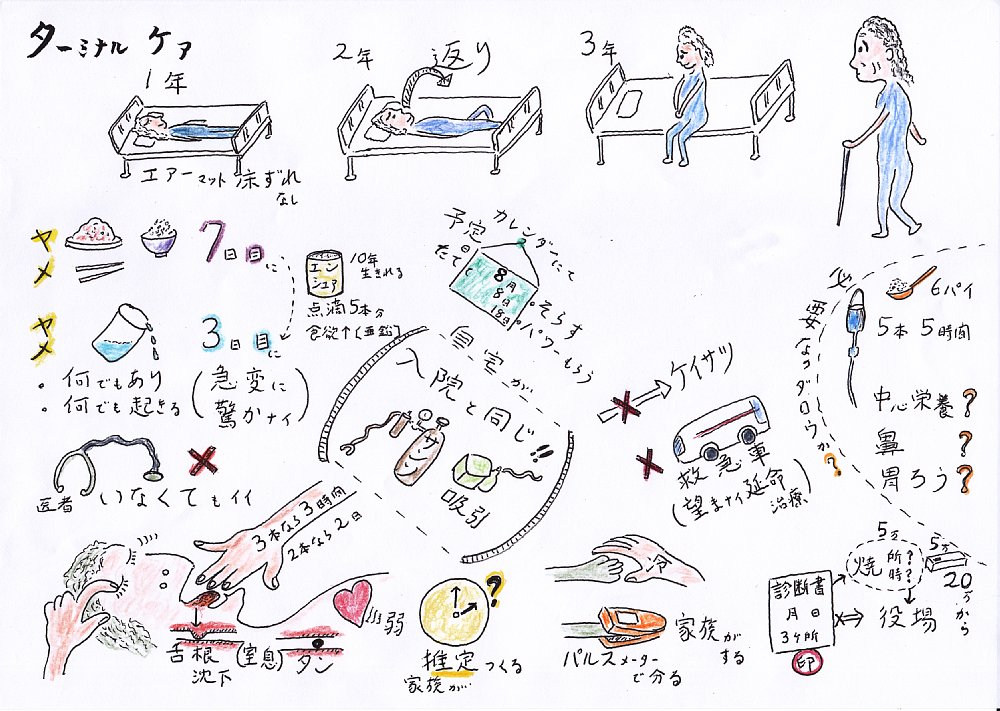 ターミナル ケア
1年
2年
返り
3年
エアーマット 床ずれ
なし
ヤメ
7日目に
エンシュア
10年
生きれる
点滴5本分
食欲↑(亜鉛)
予定
日
たてて
カレンダーにて
8月
8日
18時
・そらす
・パワーもらう
ヤメ
3日目に
・何でもあり
・何でも起きる
(急変に
驚かナイ)
自宅が
入院と同じ!!
サンソ
吸引
ケイサツ
救急車
(望まナイ延命
治療)
必要なのダロウか?
6パイ
5本 5時間
中心栄養?
鼻 ?
胃ろう?
医者 いなくてもイイ
3本なら3時間
2本なら2日
舌根
沈下
(窒息)
タン
弱
?
推定つくる
家族が…
冷
パルスメーター
で分る
家族が
する
診断書
月 日
3ヶ所
印
5万
焼 所?
時??
5万
20万から
役場